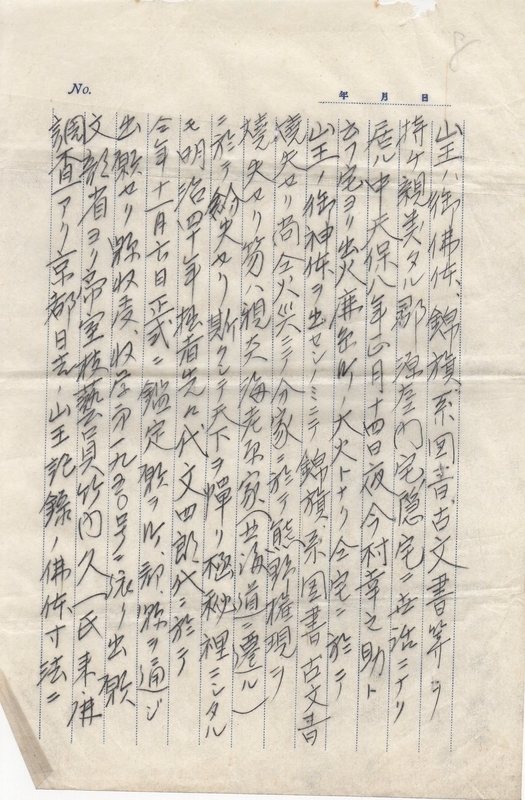 8
No.
年 月 日
山王ハ御佛体、錦旗系図書、古文書等ヲ
持ケ親类タル郡 源左ェ門宅隠宅ニ世話ニナリ
居ル中天保八年正月十四日夜今村幸之助ト
云フ宅ヨリ出火 町ノ大火トナリ仝宅ニ於テ
山王ノ御神体ヲ出セシノミニテ錦旗系図書古文書
焼失セリ尚仝火災ニテ分家ニ於テ熊野権現ヲ
焼失セリ 八親类海老原家(北海道ニ遷ル)
ニ於テ紛失セリ斯クシテ天下ヲ憚リ極秘裡ニシタル
モ明治四十年拙者先代文四郎代ニ於テ
仝年十一月六日正式ニ鑑定願ヲ町、郡、縣ヲ通ジ
出願セリ縣收受、收学第一九五〇号ニ依リ出願
文部省ヨリ帝室技藝員竹内久一氏来
調査アリ京都日吉ノ山王記録ノ佛体寸法ニ